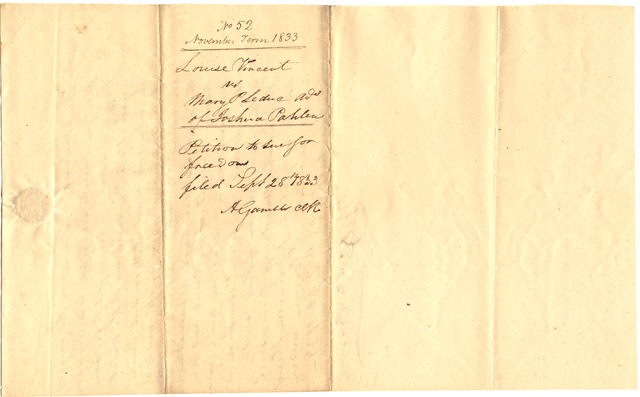 No 52
November Term 1833
Louise Vincent
vs
Mary P Leduc adx
of Joshua
Petition to sue for
freedom
filed Sept 28th 1833
A Gamble clk